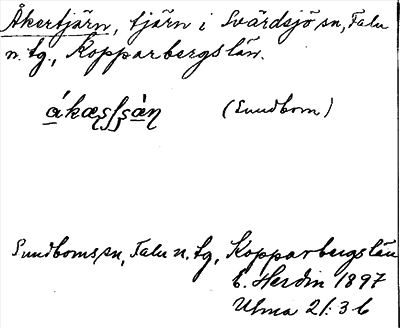 Åkertjärn, tjärn i Svärdsjö sn, Falu
n. tg., Kopparbergs län.
(Sundborn)
Sundborns sn, Falu n. tg, Kopparbergs län
E. Herdin 1897
Ulma 21: 3 b